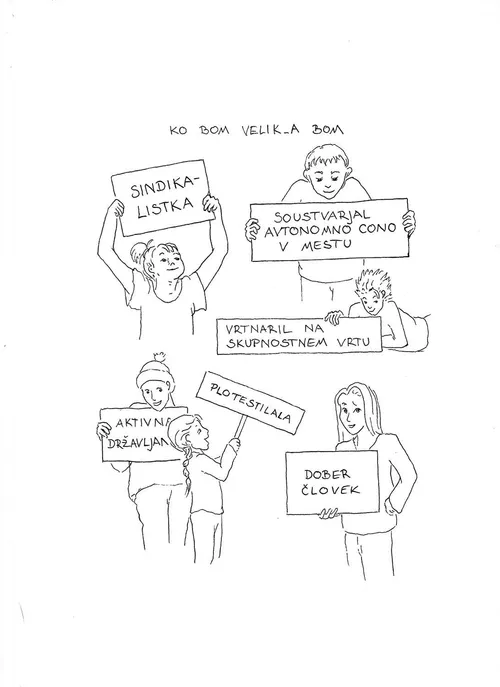 KO BOM VELIK_A BOM
SINDIKA-
LISTKA
SOUSTVARJAL
AVTONOMNO CONO
V MESTU
VRTNARIL NA
SKUPNOSTNEM VRTU
PLOTESTILALA
AKTIVNA
DRŽAVLJAN
DOBER
ČLOVEK